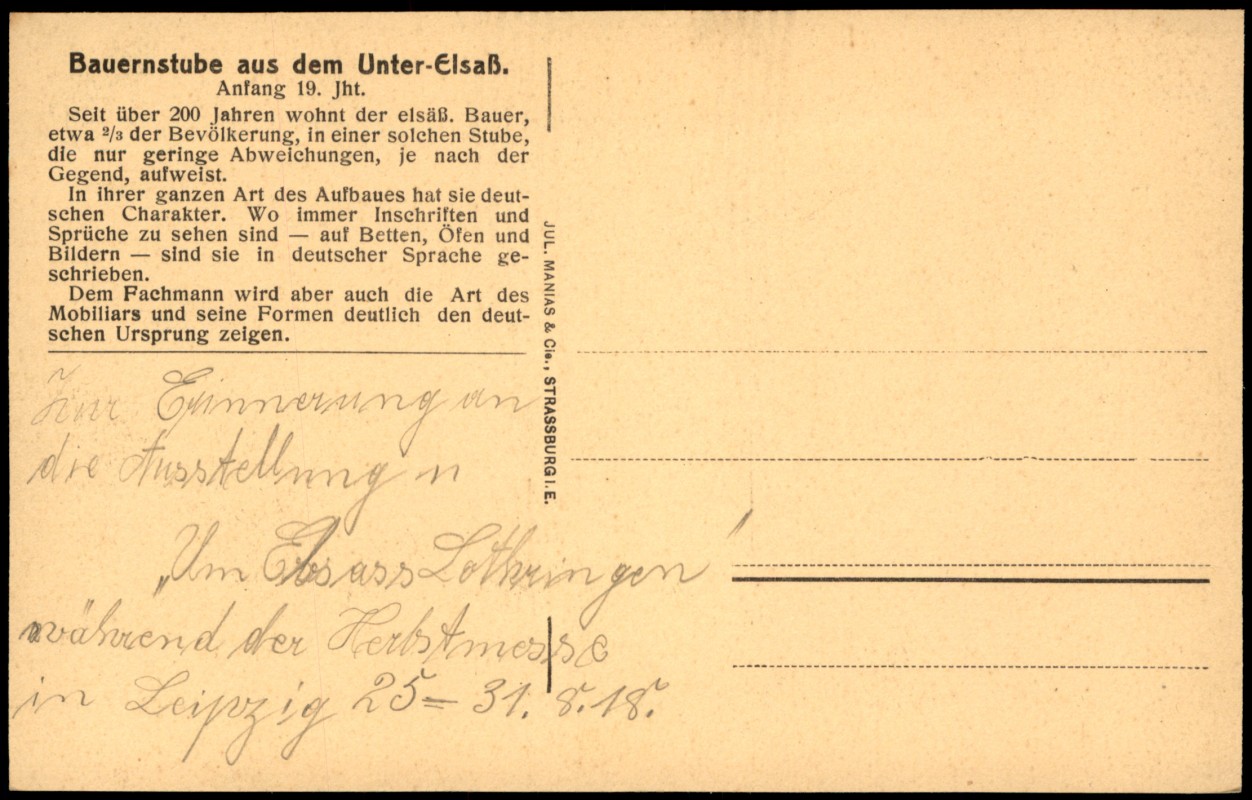 Bauernstube aus dem Unter-Elsaß.
Anfang 19. Jht.
Seit über 200 Jahren wohnt der elsäß. Bauer,
etwa ²/₃ der Bevölkerung, in einer solchen Stube,
die nur geringe Abweichungen, je nach der
Gegend, aufweist.
In ihrer ganzen Art des Aufbaues hat sie deut-
schen Charakter. Wo immer Inschriften und
Sprüche zu sehen sind — auf Betten, Öfen und
Bildern — sind sie in deutscher Sprache ge-
schrieben.
Dem Fachmann wird aber auch die Art des
Mobiliars und seine Formen deutlich den deut-
schen Ursprung zeigen.
JUL. MANIAS & Cie., STRASSBURG I. E.
Zur Erinnerung an
die Ausstellung
„Um Elsass Lothringen"
während der Herbstmesse
in Leipzig 25 = 31. 8. 18.